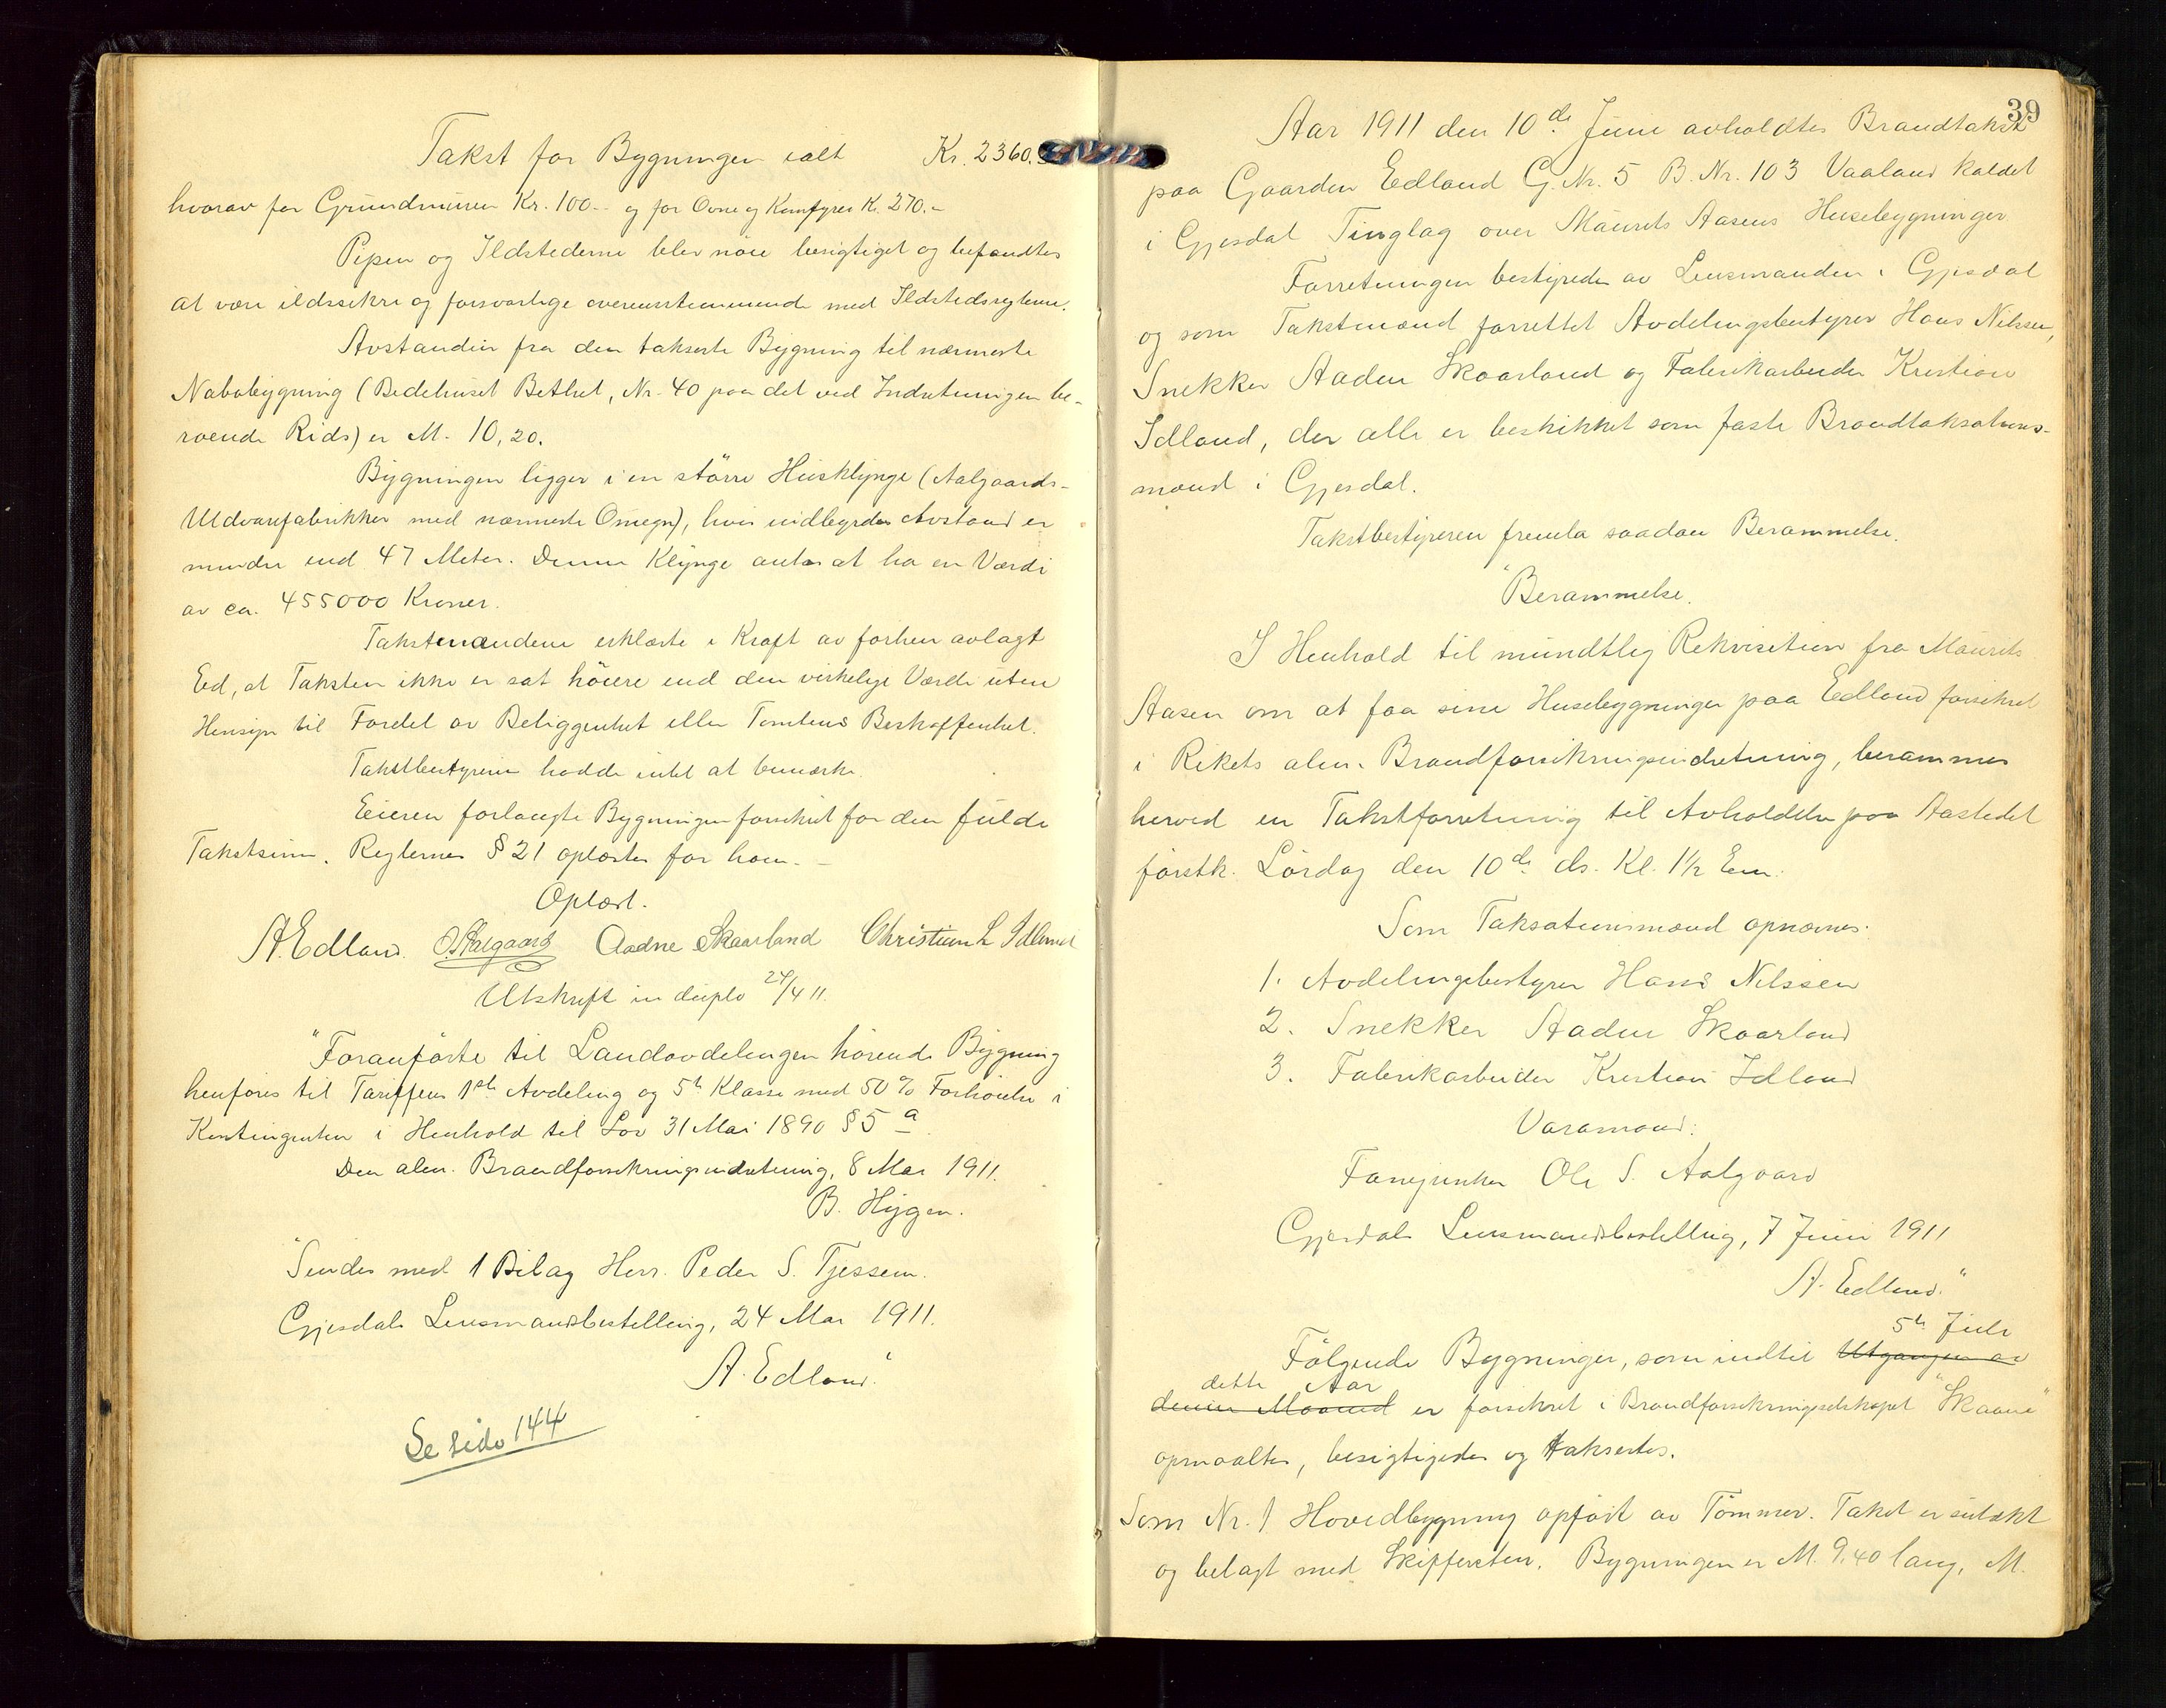 Takst for Bygningen ialt Kr. 2360.-
hvorav for Grundmuren Kr. 100.- og for Ovne og Komfyrer K. 270.-
Pipen og Ildstederne blev nöie besigtiget og befandtes
at være ildssikre og forsvarlige overensstemmende med Ildstedsreglerne.
Avstanden fra den takserte Bygning til nærmeste
Nabobygning (Bedehuset Bethel, Nr. 40 paa det ved Indretningen be-
roende Rids) er M. 10,20.
Bygningen ligger i en större Husklynge (Aalgaards-
Uldvarefabrikker med nærmeste Omegn), hvis indbyrdes Avstand er
mindre end 47 Meter. Denne Klynge antas at ha en Værdi
av ca. 455000 Kroner.
Takstmændene erklærte i Kraft av forhen avlagt
Ed, at Taksten ikke er sat höiere end den virkelige Værdi uten
Hensyn til Fordel av Beliggenhet eller Tomtens Beskaffenhet.
Takstbestyreren hadde intet at bemærke.
Eieren forlangte Bygningen forsikret for den fulde
Takstsum. Reglernes § 21 oplæstes for ham. -
Oplæst.
A. Edland. O. S. Aalgaard Aadne Skaarland Christian L Idland
Utskrift in duplo 24/4 11.
"Foranförte til Landavdelingen hörende Bygning
henföres til Tariffens 1ste Avdeling og 5te Klasse med 50 % Forhöielse i
Kontingenten i Henhold til Lov 31 Mai 1890 § 5 a
Den alm. Brandforsikringsindretning, 8 Mai 1911.
B. Hygen.
"Sendes med 1 Bilag Herr. Peder S. Tjessem.
Gjesdals Lensmandsbestilling, 24 Mai 1911.
A. Edland."
Se side 144
39
Aar 1911 den 10de Juni avholdtes Brandtakst
paa Gaarden Edland G. Nr. 5 B. Nr. 103 Vaaland kaldet
i Gjesdal Tinglag over Maurits Aasens Husebygninger
Forretningen bestyredes av Lensmanden i Gjesdal
og som Takstmænd forrettet Avdelingsbestyrer Hans Nilssen,
Snekker Aadne Skaarland og Fabrikarbeider Kristian
Idland, der alle er beskikket som faste Brandtaksations-
mænd i Gjesdal.
Takstbestyreren fremla saadan Berammelse.
"Berammelse.
I Henhold til mundtlig Rekvisition fra Maurits
Aasen om at faa sine Husebygninger paa Edland forsikret
i Rikets alm. Brandforsikringsindretning, berammes
herved en Takstforretning til Avholdelse paa Aastedet
förstk. Lördag den 10de ds. Kl. 1½ Em.
Som Taksationsmænd opnævnes:
1. Avdelingsbestyrer Hans Nilssen
2. Snekker Aadne Skaarland
3. Fabrikarbeider Kristian Idland
Varamand:
Fanejunker Ole S. Aalgaard
Gjesdals Lensmandsbestilling, 7 Juni 1911
A. Edland."
5te Juli
Fölgende Bygninger, som indtil Utgangen av
dette Aar
denne Maaned er forsikret i Brandforsikringsselskapet "Skaane"
opmaaltes, besigtigedes og taksertes.
Som Nr. 1 Hovedbygning opfört av Tömmer. Taket er sutækt
og belagt med Skifersten. Bygningen er M. 9.40 lang, M.